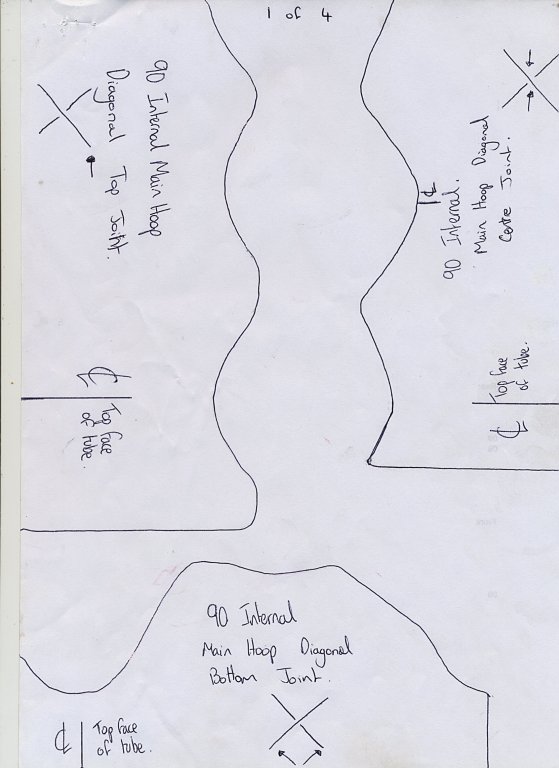 1 of 4
90 Internal Main Hoop
Diagonal Top Joint.
℄ Top face
of tube.
90 Internal.
Main Hoop Diagonal
Cente Joint.
℄
Top face
of tube.
℄
90 Internal
Main Hoop Diagonal
Bottom Joint.
℄ Top face
of tube.